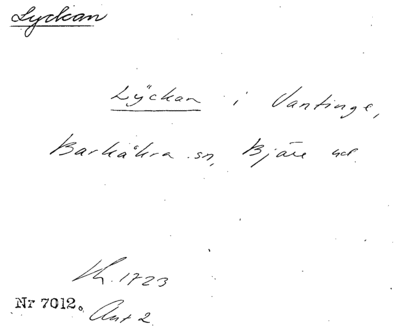 Lyckan
Lÿckan i Vantinge,
Barkåkra sn, Bjäre hd.
Lh. 1723
Nr 7012. Ant 2